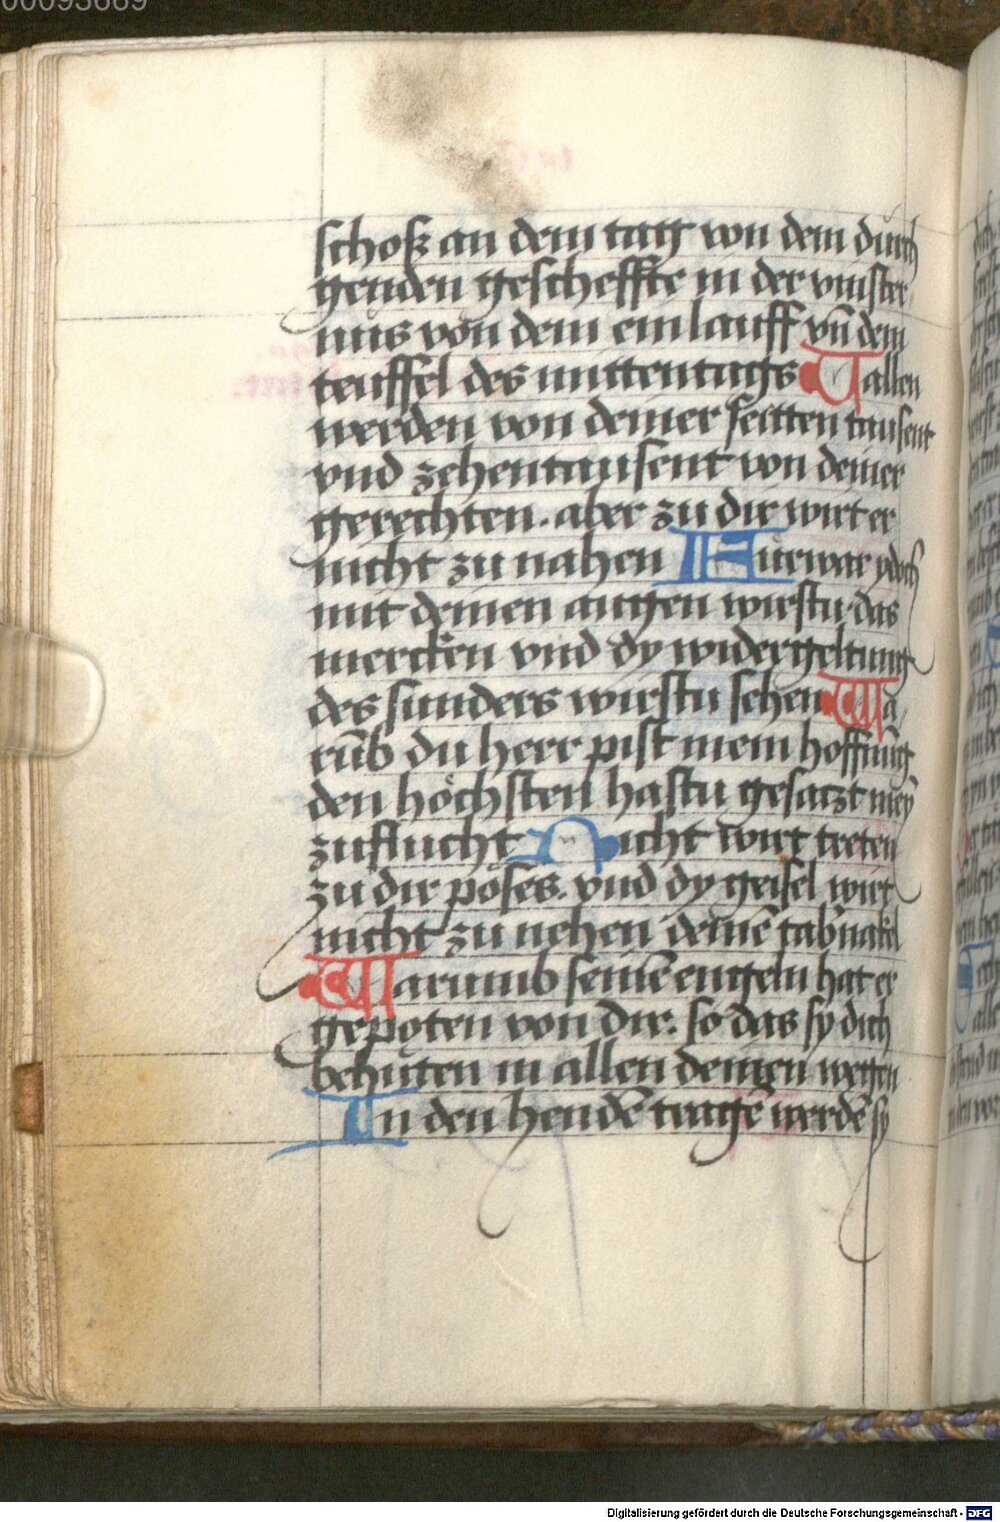 00093669
schosz an dem tag von dem durch
genden gescheffte in der vinster
nus von dem einlauff vn̄ dem
teuffel des mittentags Uallen
werden von deiner seitten tausent
vnd zehentausent von deiner
gerechten. aber zu dir wirt er
nicht zu nahen Furwar ydoch
mit deinen augen wirstu das
mercken vnd dy widergeltung
des sunders wirstu sehen Wa
rūb du herr pist mein hoffnūg
den höchsten hastu gesaczt mey̅
zuflucht Nicht wirt treten
zu dir pöses. vnd dy geisel wirt
nicht zu nehen deinē tab'nakel
Warumb seinē engeln hat er
gepoten von dir. so das sy dich
behuten in allen deinen wegen
In den hendē tragē werdē sy
Digitalisierung gefördert durch die Deutsche Forschungsgemeinschaft - DFG